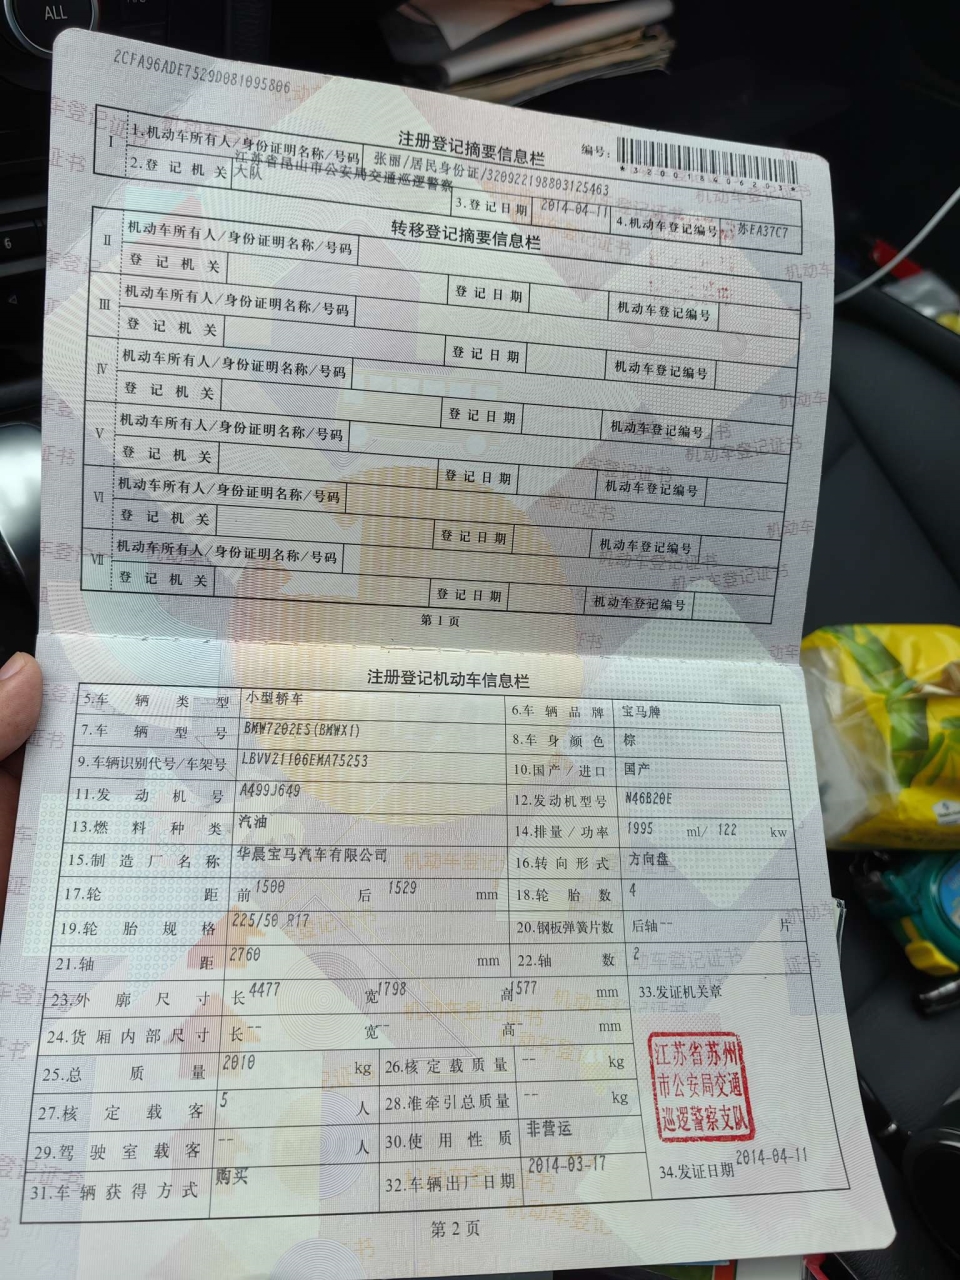 ALL
6
2CFA96ADE7529D081095806
注册登记摘要信息栏
编号:
*320018606203*
I
1.机动车所有人/身份证明名称/号码 张丽/居民身份证/320922198803125463
2.登记机关 江苏省昆山市公安局交通巡逻警察大队 3.登记日期 2014-04-11 4.机动车登记编号 苏EA37C7
转移登记摘要信息栏
II
机动车所有人/身份证明名称/号码
登记机关 登记日期 机动车登记编号
III
机动车所有人/身份证明名称/号码
登记机关 登记日期 机动车登记编号
IV
机动车所有人/身份证明名称/号码
登记机关 登记日期 机动车登记编号
V
机动车所有人/身份证明名称/号码
登记机关 登记日期 机动车登记编号
VI
机动车所有人/身份证明名称/号码
登记机关 登记日期 机动车登记编号
VII
机动车所有人/身份证明名称/号码
登记机关 登记日期 机动车登记编号
第1页
注册登记机动车信息栏
5.车辆类型 小型轿车 6.车辆品牌 宝马牌
7.车辆型号 BMW7202ES(BMWX1) 8.车身颜色 棕
9.车辆识别代号/车架号 LBVVZ1106EMA75253 10.国产/进口 国产
11.发动机号 A499J649 12.发动机型号 N46B20E
13.燃料种类 汽油 14.排量/功率 1995 ml/ 122 kw
15.制造厂名称 华晨宝马汽车有限公司 16.转向形式 方向盘
17.轮距 前1500 后1529 mm 18.轮胎数 4
19.轮胎规格 225/50 R17 20.钢板弹簧片数 后轴-- 片
21.轴距 2760 mm 22.轴数 2
23.外廓尺寸 长4477 宽1798 高1577 mm 33.发证机关章
24.货厢内部尺寸 长-- 宽-- 高-- mm
25.总质量 2010 kg 26.核定载质量 -- kg
27.核定载客 5 人 28.准牵引总质量 -- kg
29.驾驶室载客 -- 人 30.使用性质 非营运
31.车辆获得方式 购买 32.车辆出厂日期 2014-03-17
江苏省苏州
市公安局交通
巡逻警察支队
34.发证日期 2014-04-11
第2页